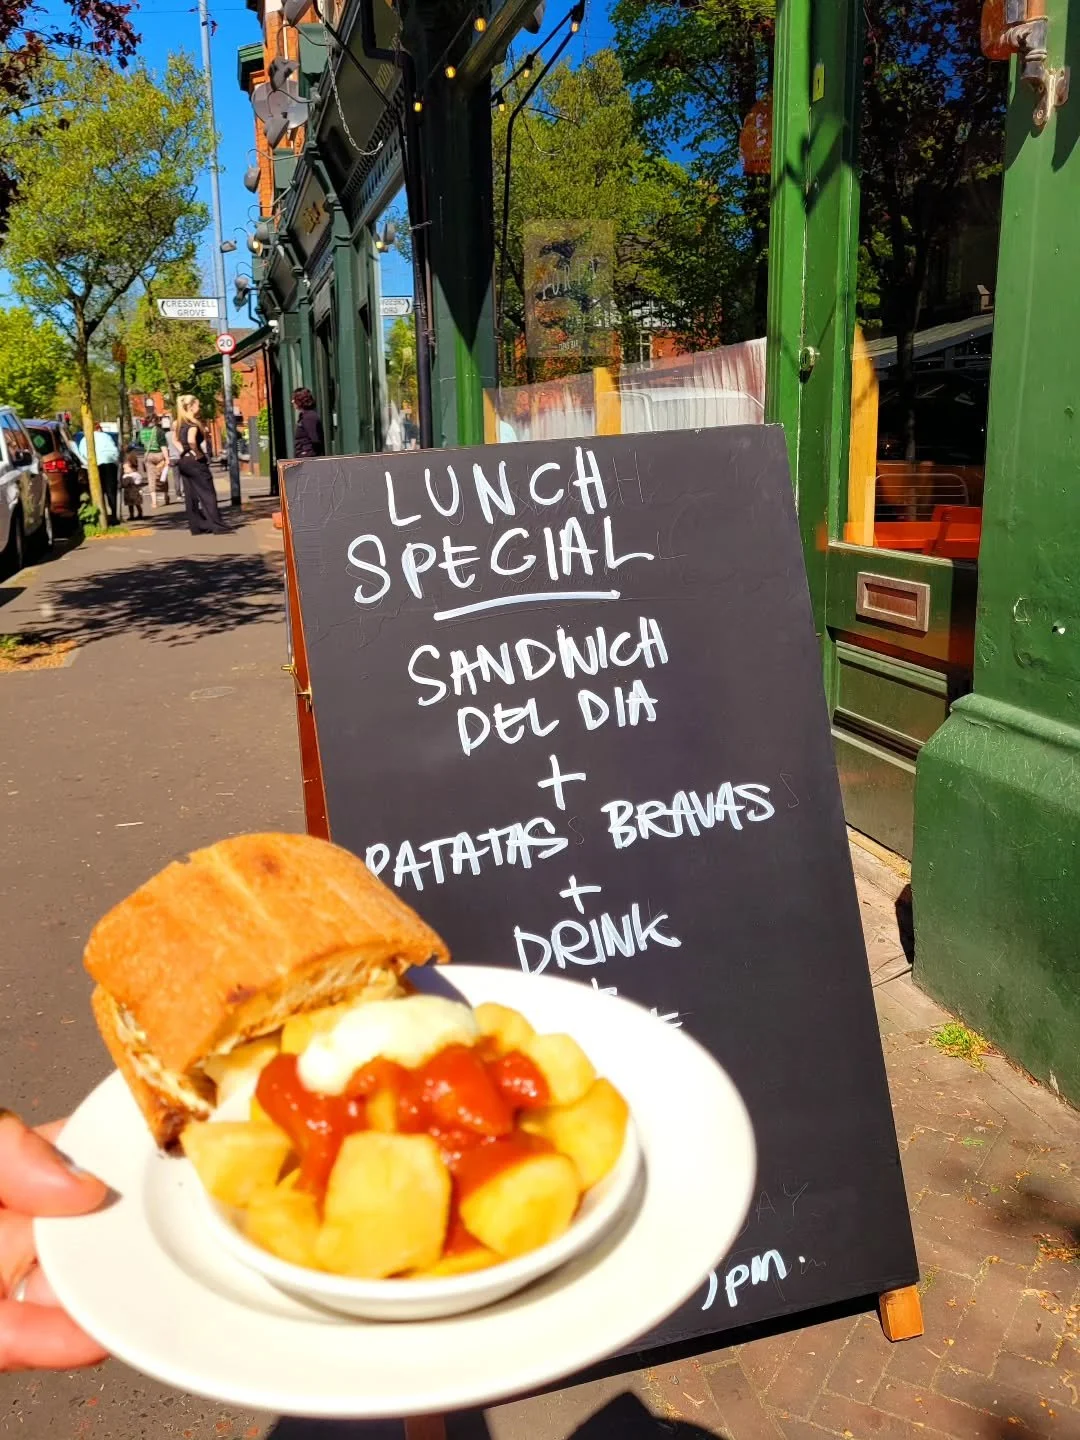 CRESSWELL
GROVE
20
LUNCH
SPECIAL
SANDWICH
DEL DIA
+
PATATAS BRAVAS
+
DRINK
pm.